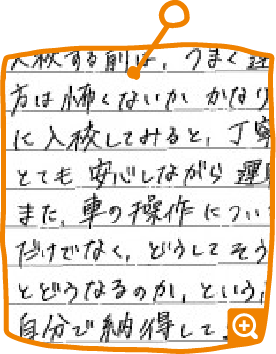 入校する前は、うまく運
方は怖くないか かなり
に入校してみると、丁寧
とても 安心しながら 運
また、車の操作につい
だけでなく、どうしてそう
とどうなるのか、という
自分で納得して